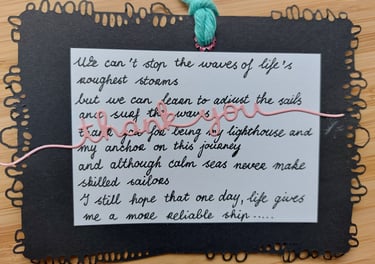 We can't stop the waves of life's
roughest storms
but we can learn to adjust the sails
and surf the waves
thank you
Thank you for being my lighthouse and
my anchor on this journey
and although calm seas never make
skilled sailors
I still hope that one day, life gives
me a more reliable ship.....